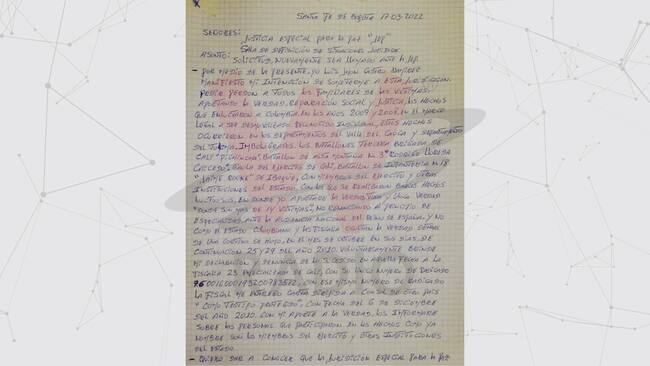 SANTA FE DE BOGOTA 17-03-2022
SEÑORES:
JUSTICIA ESPECIAL PARA LA PAZ "JEP"
SALA DE DEFINICIÓN DE SITUACIONES JURIDICAS
ASUNTO: SOLICITUD, NUEVAMENTE SEA LLAMADO ANTE LA JEP
- POR MEDIO DE LA PRESENTE, YO LUIS JHON CASTRO RAMIREZ
MANIFIESTO MI INTENCION DE SOMETERME A ESTA JURISDICCION
PEDIR PERDON A TODOS LOS FAMILIARES DE LAS VICTIMAS,
APORTANDO LA VERDAD, REPARACION SOCIAL Y JUSTICIA, LOS HECHOS
QUE ENLUTARON A COLOMBIA, EN LOS AÑOS 2007 Y 2008, EN EL MARCO
LEGAL A SER DESMOVILIZADO ESTOS HECHOS
OCURRIERON EN LOS DEPARTAMENTOS DEL VALLE DEL CAUCA Y DEPARTAMENTO
DEL TOLIMA, LOS BATALLONES TERCERA BRIGADA DE
CALI "PICHINCHA", BATALLON DE ALTA MONTAÑA N. 3 "RODRIGO LLOREDA
CAICEDO", DEL EJERCITO DE CALI, BATALLON DE INFANTERIA N. 18
"JAIME ROOKE" DE IBAGUE, CON MIEMBROS DEL EJERCITO Y OTRAS
INSTITUCIONES DEL ESTADO, CON LOS QUE SE REALIZARON VARIOS HECHOS
EN DONDE YO APORTARE LA VERDAD Y UNICA VERDAD
SON MAS DE 14 VICTIMAS, NO RENUNCIANDO AL PRINCIPIO DE
ESPECIALIDAD, ANTE LA AUDIENCIA NACIONAL DEL REINO DE ESPAÑA, Y NO
COMO EL ESTADO COLOMBIANO Y LA FISCALIA OCULTAN LA VERDAD DETRAS
DE UNA CORTINA DE HUMO, EN EL MES DE OCTUBRE EN SUS DIAS, DE
CONTINUACION 25 Y 29 DEL AÑO 2020, VOLUNTARIAMENTE RENDI
MI DECLARACION Y DENUNCIA DE LO SUCEDIDO EN AQUELLA FECHA A LA
FISCALIA 23 ESPECIALIZADA DE CALI, CON SU UNICO NUMERO DE RADICADO
CON ESE MISMO NUMERO DE RADICADO
LA FISCAL ME ENTREGO CARTA DIRIGIDA A CONSUL DE ESTE PAIS
"COMO TESTIGO PROTEGIDO", CON FECHA DEL 6 DE DICIEMBRE
DEL AÑO 2020, CON MI APORTE A LA VERDAD, LOS INFORMARE
SOBRE LAS PERSONAS QUE PARTICIPARON EN LOS HECHOS COMO YA
NOMBRE SON LOS MIEMBROS DEL EJERCITO Y OTRAS INSTITUCIONES
DEL ESTADO.
- QUIERO DAR A CONOCER QUE LA JURISDICCION ESPECIAL PARA LA PAZ